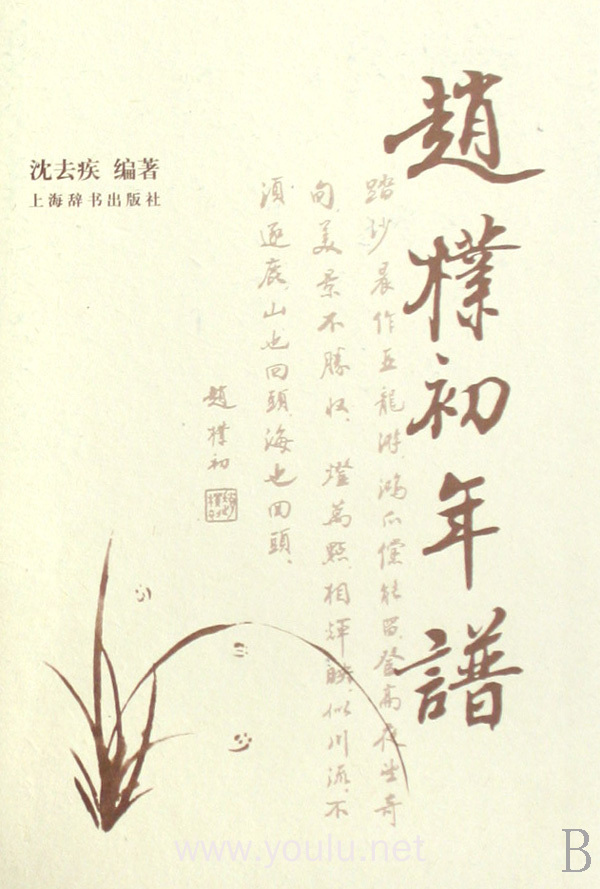 趙樸初年譜
沈去疾 编著
上海辞书出版社
踏沙晨作亚龍游,鴻爪儻能留。登高夜坐奇
句,美景不勝收。燈萬點,相輝 似川流。不
須逐鹿,山也回頭,海也回頭。
趙樸初
www.youlu.net
B